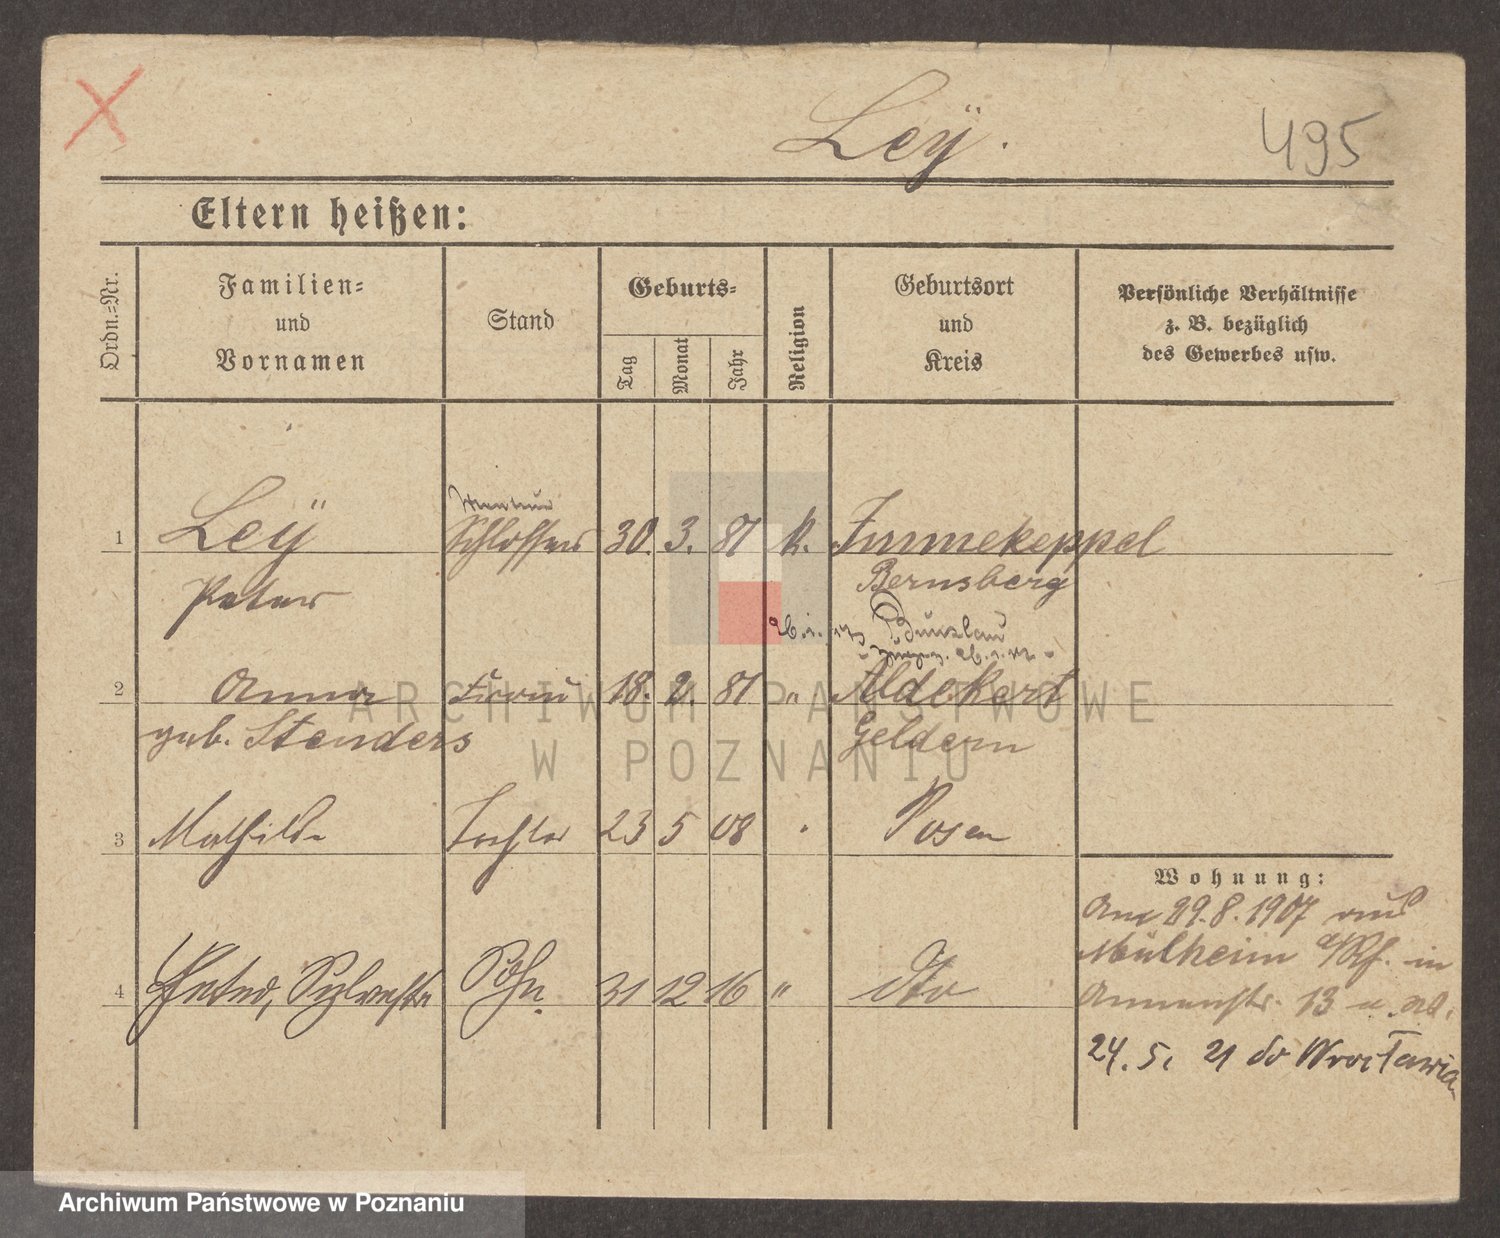 Leÿ.
495
Eltern heißen:
Ordn.-Nr.
Familien-
und
Vornamen
Stand
Geburts-
Tag
Monat
Jahr
Religion
Geburtsort
und
Kreis
Persönliche Verhältnisse
z. B. bezüglich
des Gewerbes usw.
1 Leÿ Schlosser 30. 3. 81 k. Immekeppel
Peter Bernsberg
Bunzlau
2 Anna Frau 18. 2. 81 " Aldekerk
geb. Stenders Geldern
3 Mathilde Tochter 23 5 08 " Posen
Wohnung:
Am 29.8.1907 aus
Mülheim a/Rh. in
4 Peter, Sylvester Sohn 31 12 16 " dto
Annenstr. 13
24. 5. 21 do Wrocławia
ARCHIWUM PAŃSTWOWE
W POZNANIU
Archiwum Państwowe w Poznaniu